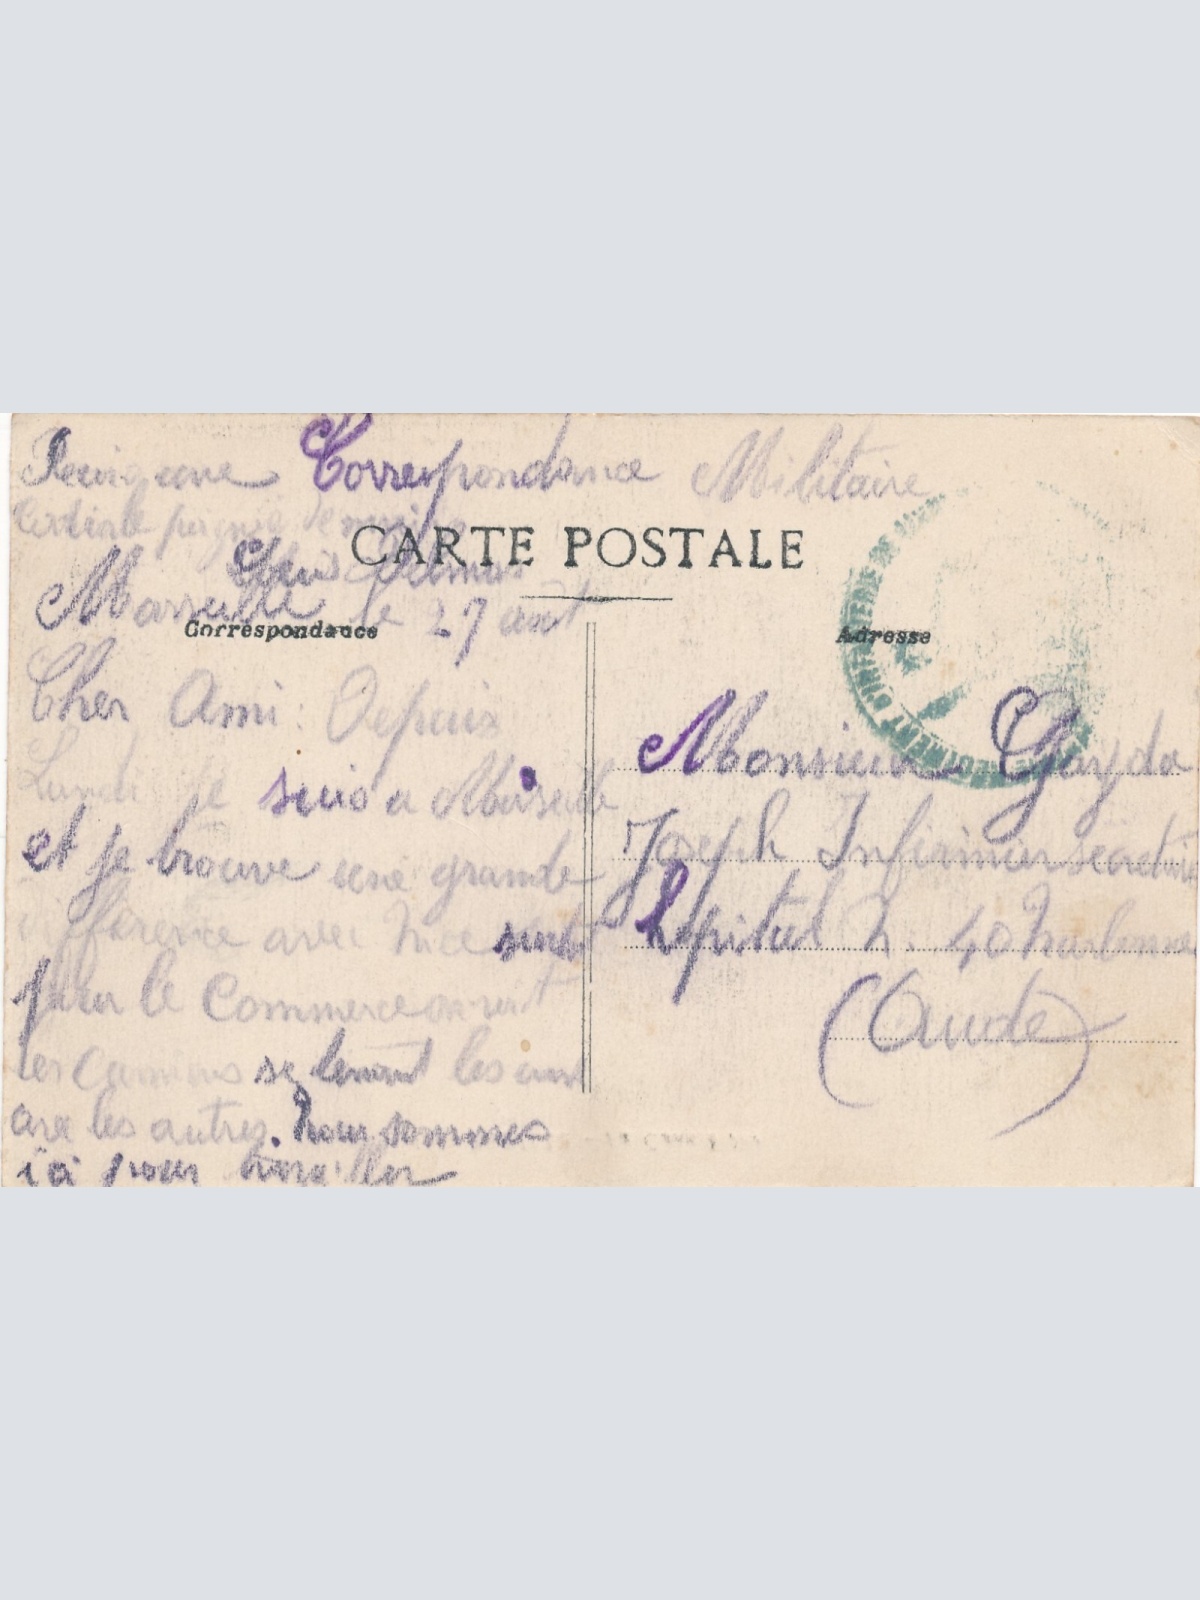 Correspondance Militaire
CARTE POSTALE
Marseille le 27 août
Correspondance
Adresse
Cher Ami: Depuis
Lundi je suis a Marseille
et je trouve une grande
difference avec Nice surtout
pour le Commerce on voit
les camions se les uns
avec les autres. nous sommes
ici pour travailler
Monsieur Gayda
Joseph Infirmier secrétaire
hopital N. 40 Narbonne
(Aude)
REGIMENT D'INFANTERIE DE